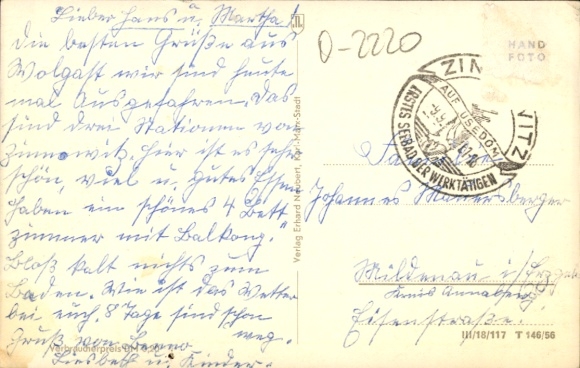 Lieber Hans u. Martha!
Die besten Grüße aus
Wolgast wir sind heute
mal Ausgefahren. Das
sind drei Stationen von
Zinnowitz. Hier ist es sehr
schön, viel u. gutes Essen
haben ein schönes 4 Bett
zimmer mit Balkong.
Bloß kalt nichts zum
Baden. Wie ist das Wetter
bei euch. 8 Tage sind schon
weg.
Gruß von Benno
Liesbett u. Kinder.
Verbraucherpreis
Verlag Erhard Neubert, Karl-Marx-Stadt
O-2220
HAND
FOTO
ZIN NITZ
AUF USEDOM
ERSTES SEEBAD DER WERKTÄTIGEN
Familie
Johannes Mauersberger
Mildenau i/Erzgeb
Kreis Annaberg
Eisenstraße.
III/18/117 T 146/56